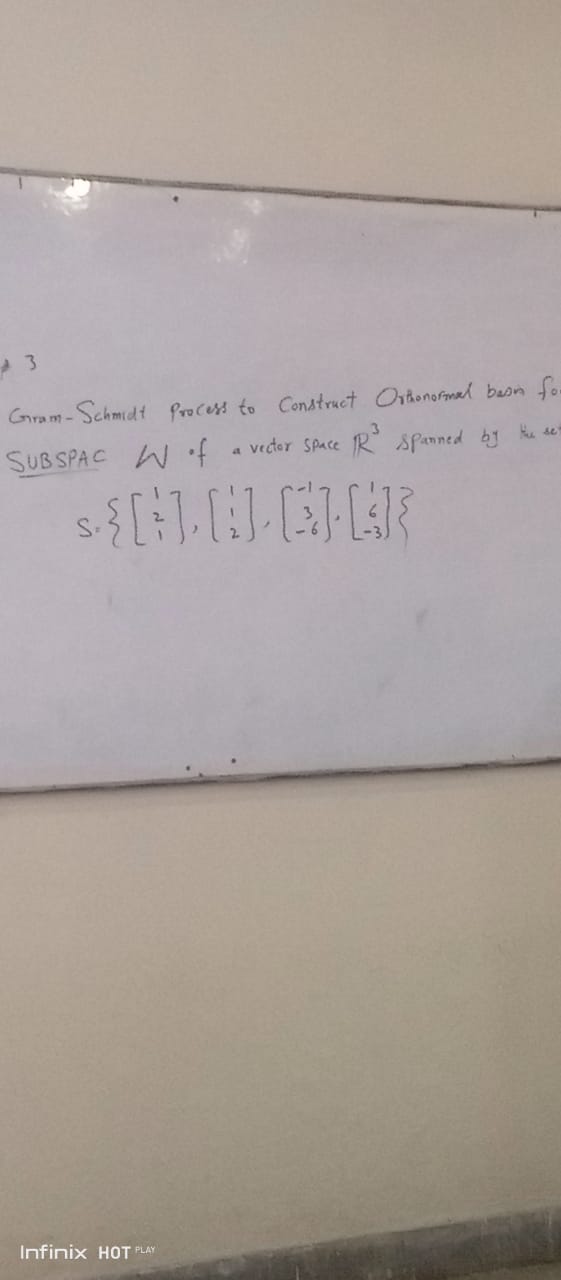 3
Gram-Schmidt Process to Construct Orthonormal basis fo
SUBSPAC W of a vector space R³ spanned by the set
S = { [1 2 1], [1 1 2], [-1 3 -6], [1 6 -3] }
Infinix HOT PLAY